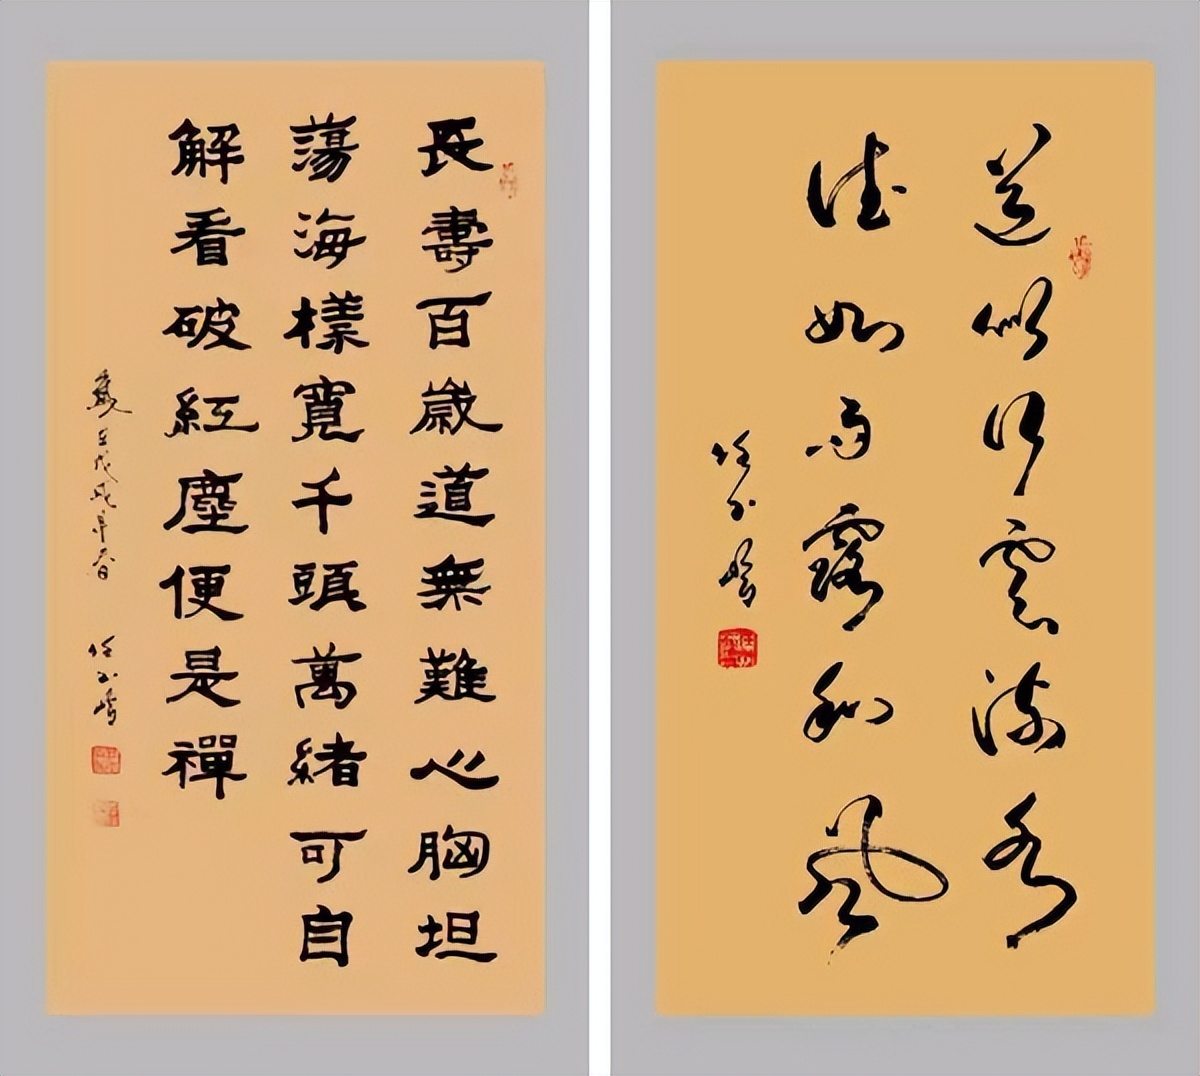 長壽百歲道無難心胸坦
蕩海樣寬千頭萬緒可自
解看破紅塵便是禪
歲在戊戌早春 任
道似行雲流水
德如雨露和風
任